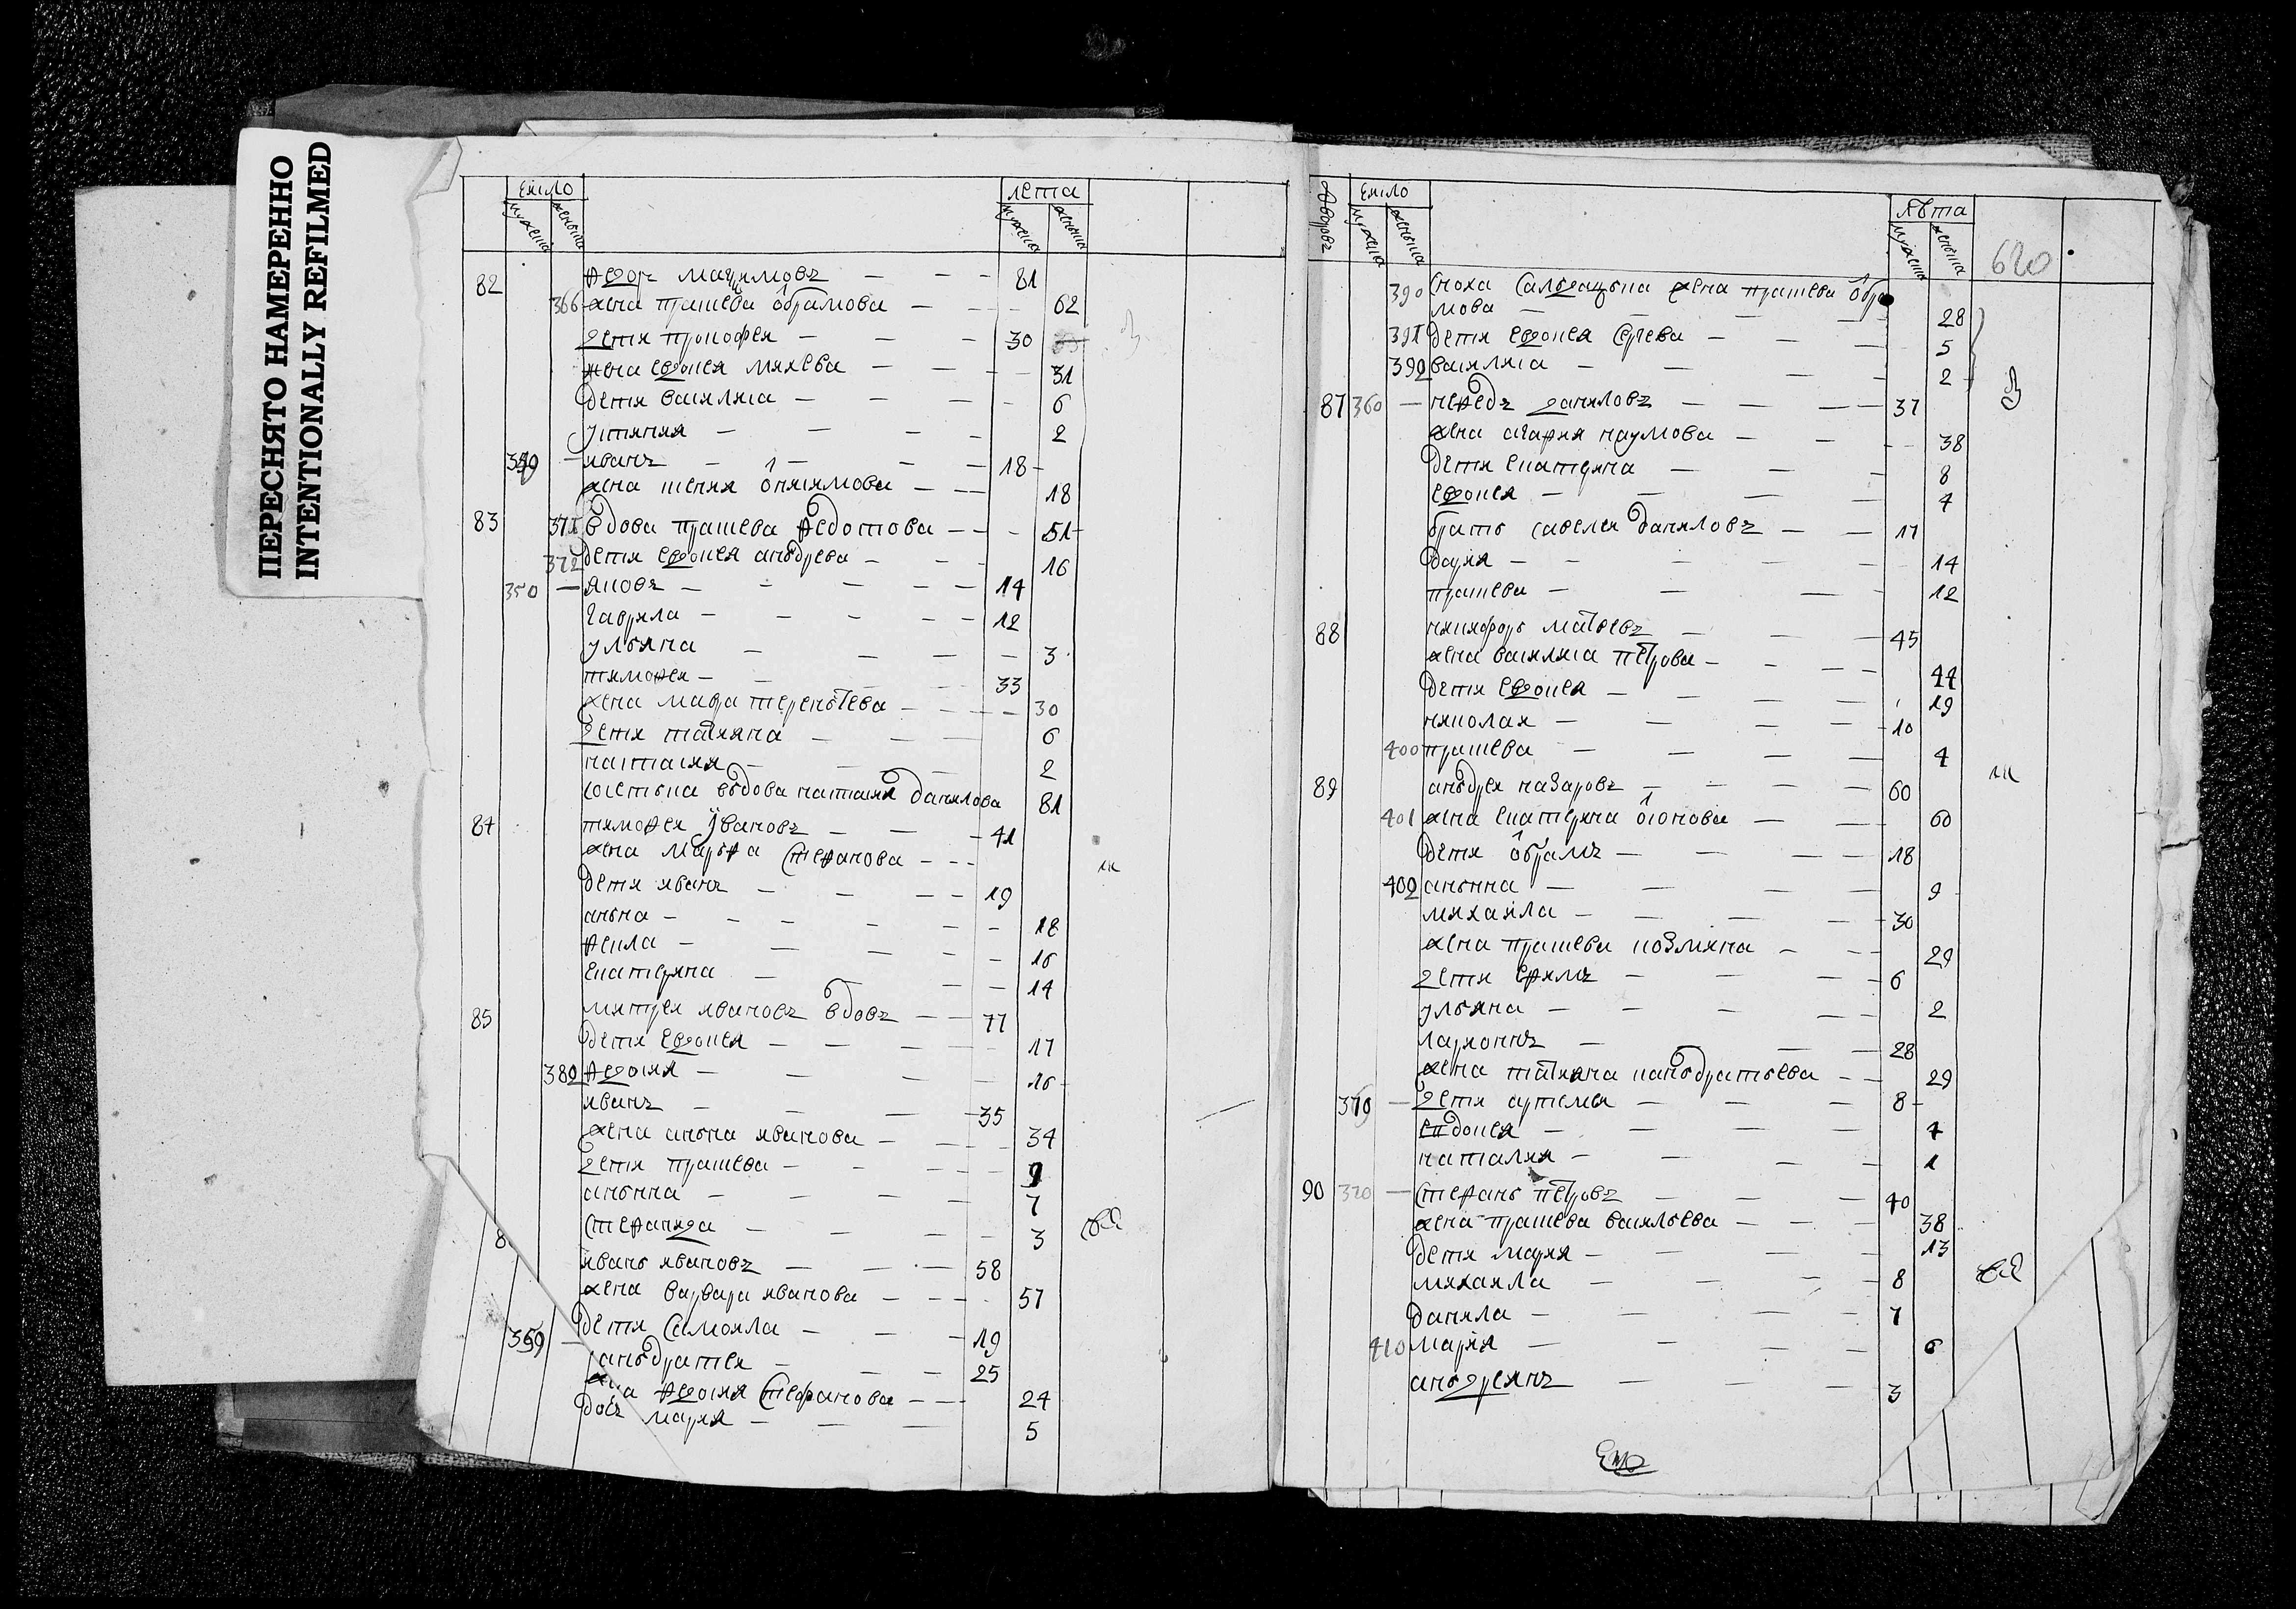 ПЕРЕСНЯТО НАМЕРЕННО
INTENTIONALLY REFILMED
число лета
мужеска женска мужеска женска
82 81
366 жена прасковя обрамова 62
дети прокофей 30
жена евдокея михева 31
дети василиса 6
устиния 2
349 иванъ 18
жена ксения онисимова 18
83 371 вдова прасковя федотова 51
372 дети евдокея анъдрева 16
350 яковъ 14
гаврила 12
ульяна 3
тимофей 33
жена мавра терентева 30
дети татияна 6
настасия 2
вдова наталия данилова 81
84 тимофей ивановъ 41
жена марфа стефанова
дети иванъ 19
анъна 18
фекла 16
екатерина 14
85 митрей ивановъ вдовъ 77
дети евдокея 17
380 федосия 16
иванъ 35
жена анъна иванова 34
дети прасковя 9
анънна 7
стефанида 3
8
иванъ ивановъ 58
жена варвара иванова 57
359 дети самойла 19
анъдратей 25
федосия стефанова 24
дочъ мария 5
дворовъ число лѣта
мужеска женска мужеска женска 620
390 сноха салдацъка жена прасковя обра
мова 28
391 дети евдокея 5
392 василиса 2
87 360 нефедъ даниловъ 37
жена агафия наумова 38
дети екатерина 8
евдокея 4
братъ савелей даниловъ 17
дария 14
прасковя 12
88 никифоръ матвевъ 45
жена василиса петрова 44
дети евдокея 19
николай 10
400 прасковя 4
89 анъдрей назаровъ 60
401 жена екатерина 60
дети обрамъ 18
402 анънна 9
михайла 30
жена прасковя козмина 29
дети ефимъ 6
ульяна 2
ларионнъ 28
жена татияна канъдратьева 29
369 дети артемей 8
евдокея 4
наталия 1
90 370 стефанъ петровъ 40
жена прасковя васильева 38
дети мария 13
михаила 8
данила 7
410 мария 6
анъдреянъ 3